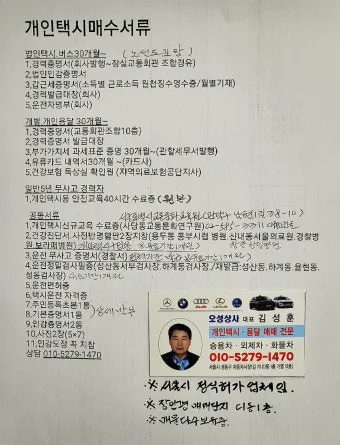 개인택시매수서류
법인택시,버스30개월~ (노선도포함)
1,경력증명서(회사발행~잠실교통회관 조합경유)
2,법인인감증명서
3,갑근세증명서(소득별 근로소득 원천징수영수증/월별기재)
4,경력발급대장(회사)
5,운전자명부(회사)
개별,개인용달 30개월~
1,경력증명서(교통회관조합10층)
2,경력증명서 발급대장
3,부가가치세 과세표준 증명 30개월~(관할세무서발행)
4,유류카드 내역서30개월 ~(카드사)
5,건강보험 득상실 확인원 (지역의료보험공단지사)
일반5년 무사고 경력자
1,개인택시용 안전교육40시간 수료증 (원본)
공통서류
1,개인택시신규교육 수료증
2,건강진단서 사진반명함판2장지참(용두동 동부시립 병원, 신내동서울의료원,경찰병원,보라매병원)
3,운전 무사고 증명서(경찰서)
4,운전정밀검사필증(성산동서부검사장, 하계동검사장./재발급:성산동, 하계동,율현동,성동 제외)
5,운전면허증
6,택시운전 자격증
7,주민등록초본1통
8,기본증명서1통
9,인감증명서2통
10,사진2장(5×7)
11,인감도장 꼭 지참
상담 010-5279-1470
Audi
LEXUS
오성상사 대표 김성훈
개인택시·용달 매매 전문
승용차·외제차·화물차
010-5279-1470
※서울시 정식허가 업체임.
※장안평 매매단지 다동1층.
※매물다수보유중.